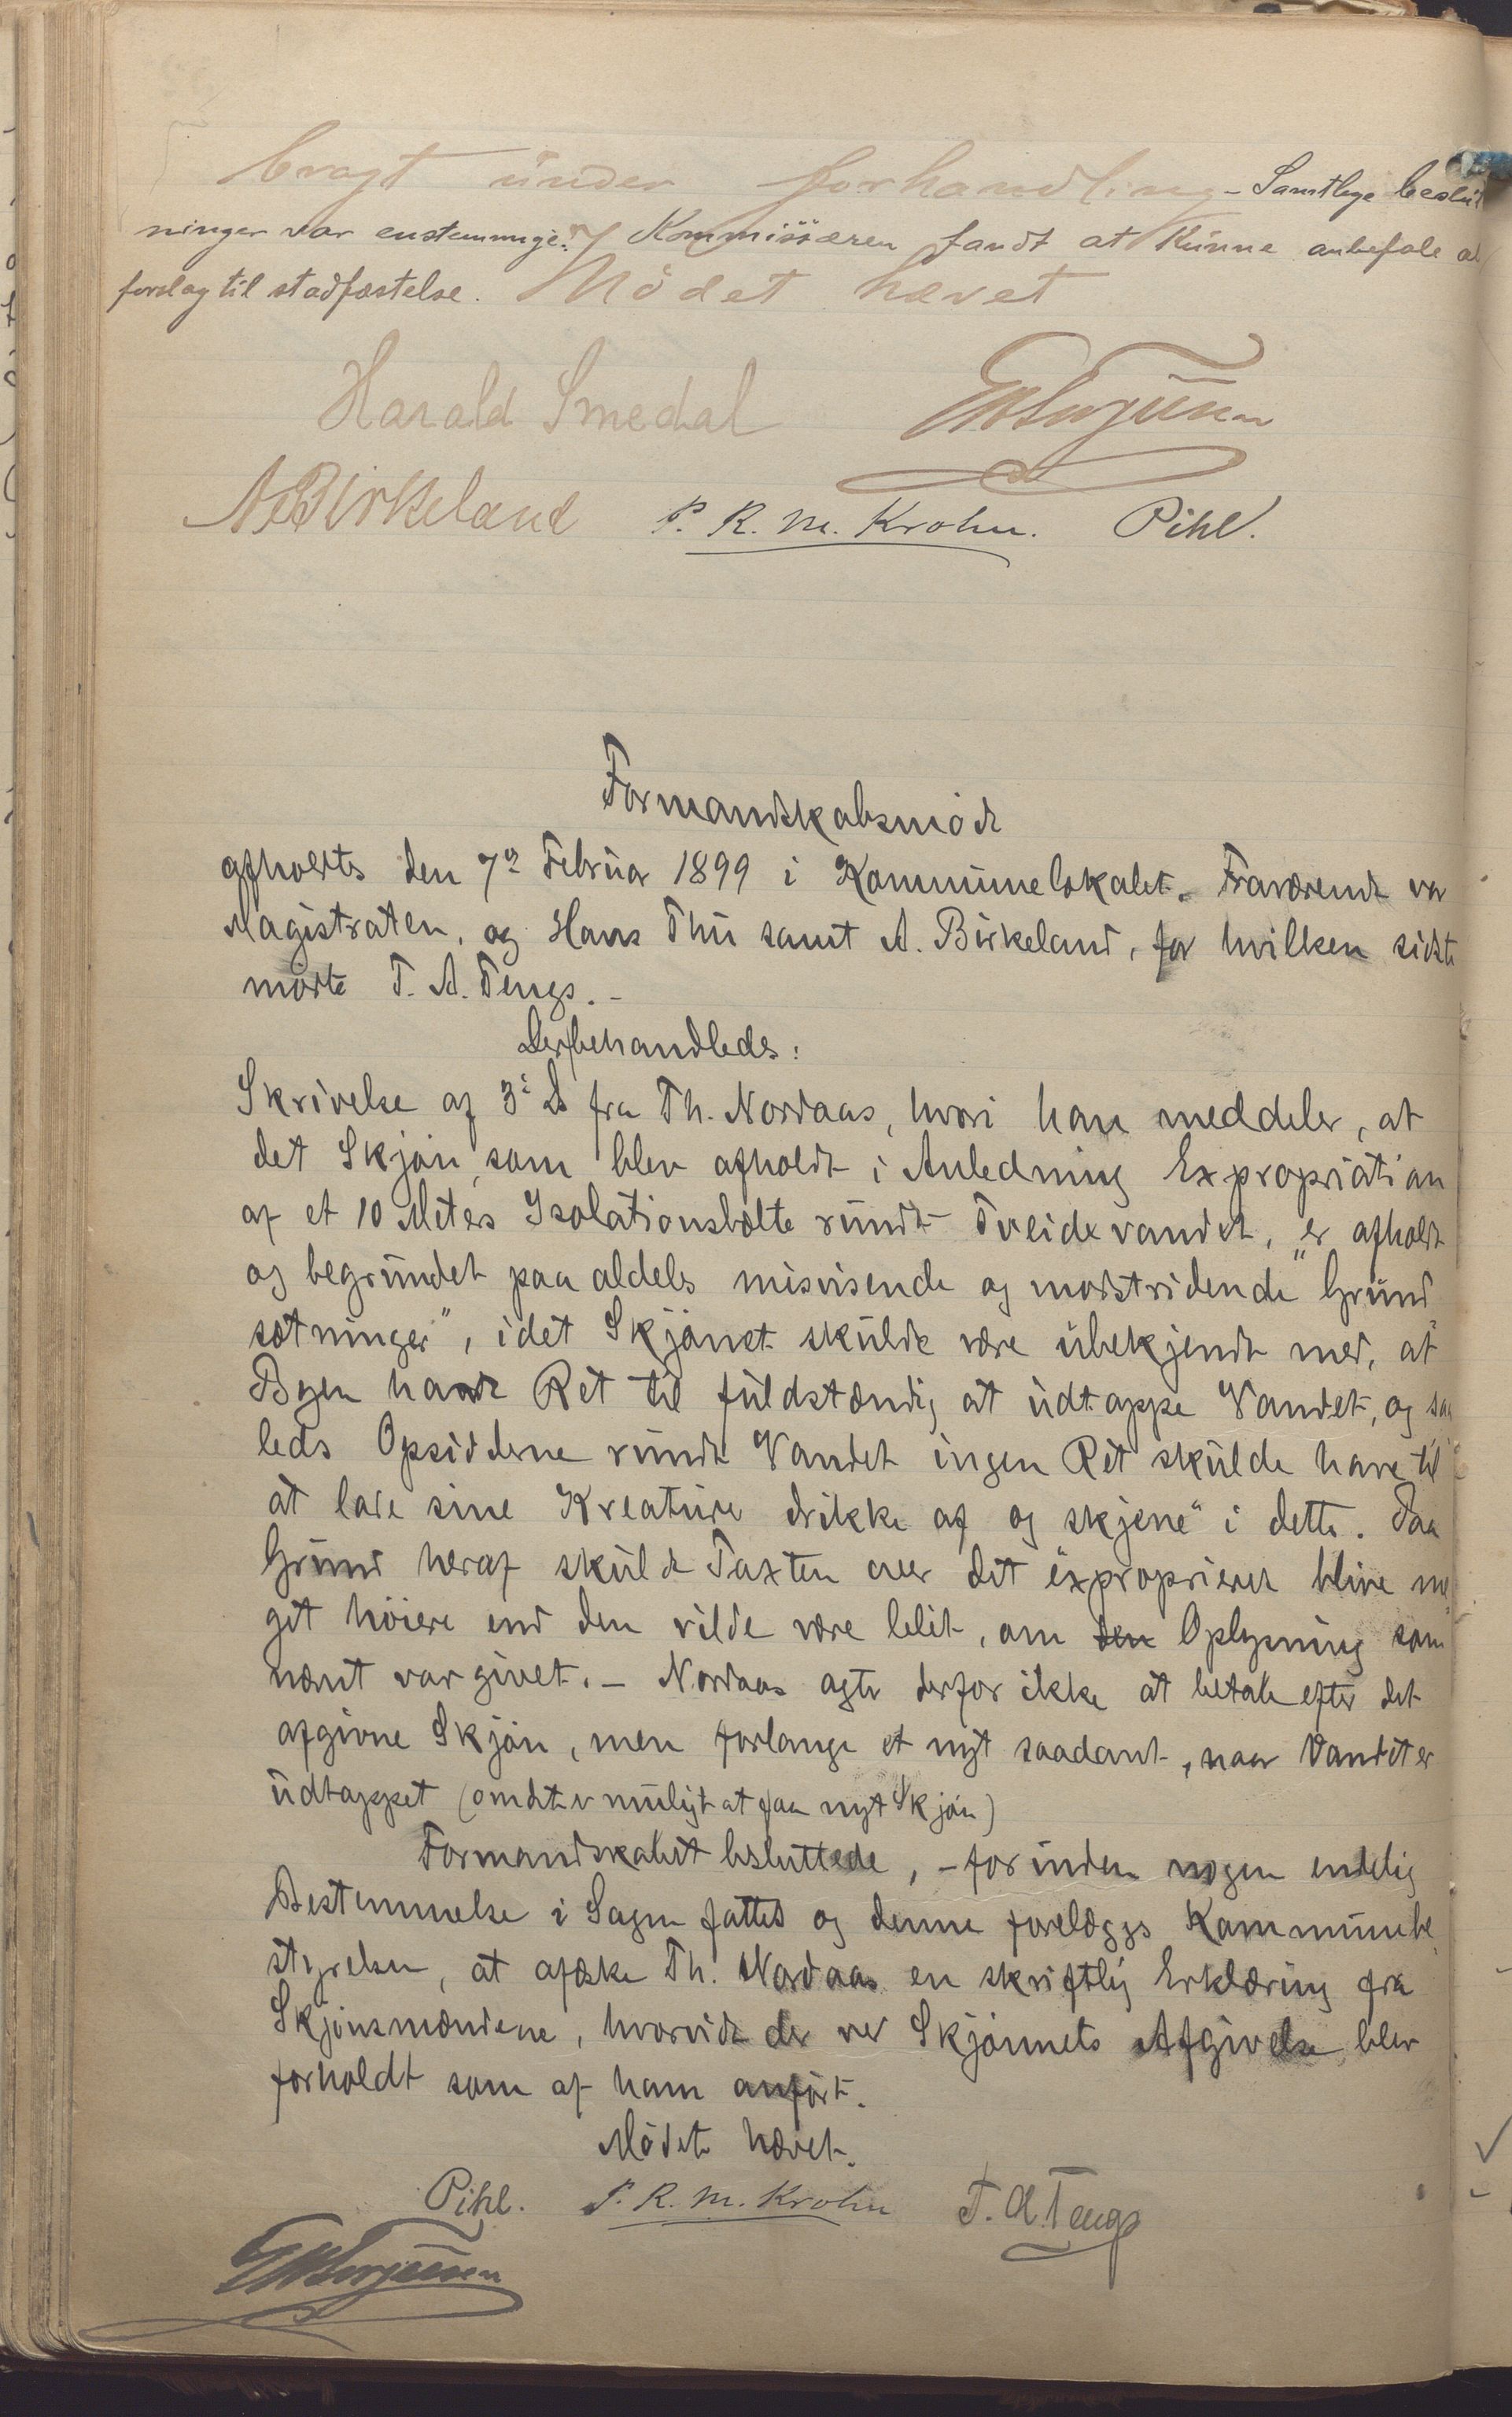 bragt under forhandling – Samtlige beslut
ninger var enstemmige. Kommissæren fandt at kunne anbefale al
forslag til stadfæstelse. Mødet hævet
Harald Smedal
A Birkeland P. R. M. Krohn. Pihl.
Formandskabsmøde
afholdtes den 7de Februar 1899 i Kommunelokalet. Fraværende var
Magistraten, og Hans Thu samt A. Birkeland, for hvilken sidste
mødte T. A. Tengs. –
Derbehandledes:
Skrivelse af 3 ds fra Th. Nordaas, hvori han meddeler, at
det Skjøn, som blev afholdt i Anledning Expropriation
af et 10 Meters Isolationsbælte rundt Tveidevandet, "er afholdt
og begrundet paa aldeles misvisende og modstridende Grund
sætninger", idet Skjønet skulde være ubekjendt med, at
Byen havde Ret til fuldstændig at udtappe Vandet, og saa
ledes Opsidderne rundt Vandet ingen Ret skulde have til
at lade sine Kreature drikke af og "skjene" i dette. Paa
Grund heraf skulde Taxten over det exproprierede blive me
get høiere end den vilde være blevet, om den Oplysning som
nævnt var givet. – Nordaas agter derfor ikke at betale efter det
afgivne Skjøn, men forlange et nyt saadant, naar Vandet er
udtappet (om det er muligt at faa nyt Skjøn)
Formandskabet besluttede, – forinden nogen endelig
Bestemmelse i Sagen fattes og denne forelægges Kommunebe
styrelsen, at afæske Th. Nordaas en skriftlig Erklæring fra
Skjønsmændene, hvorvidt der ved Skjønnets Afgivelse blev
forholdt som af ham anført.
Mødet hævet.
Pihl. P. R. M. Krohn T. A. Tengs